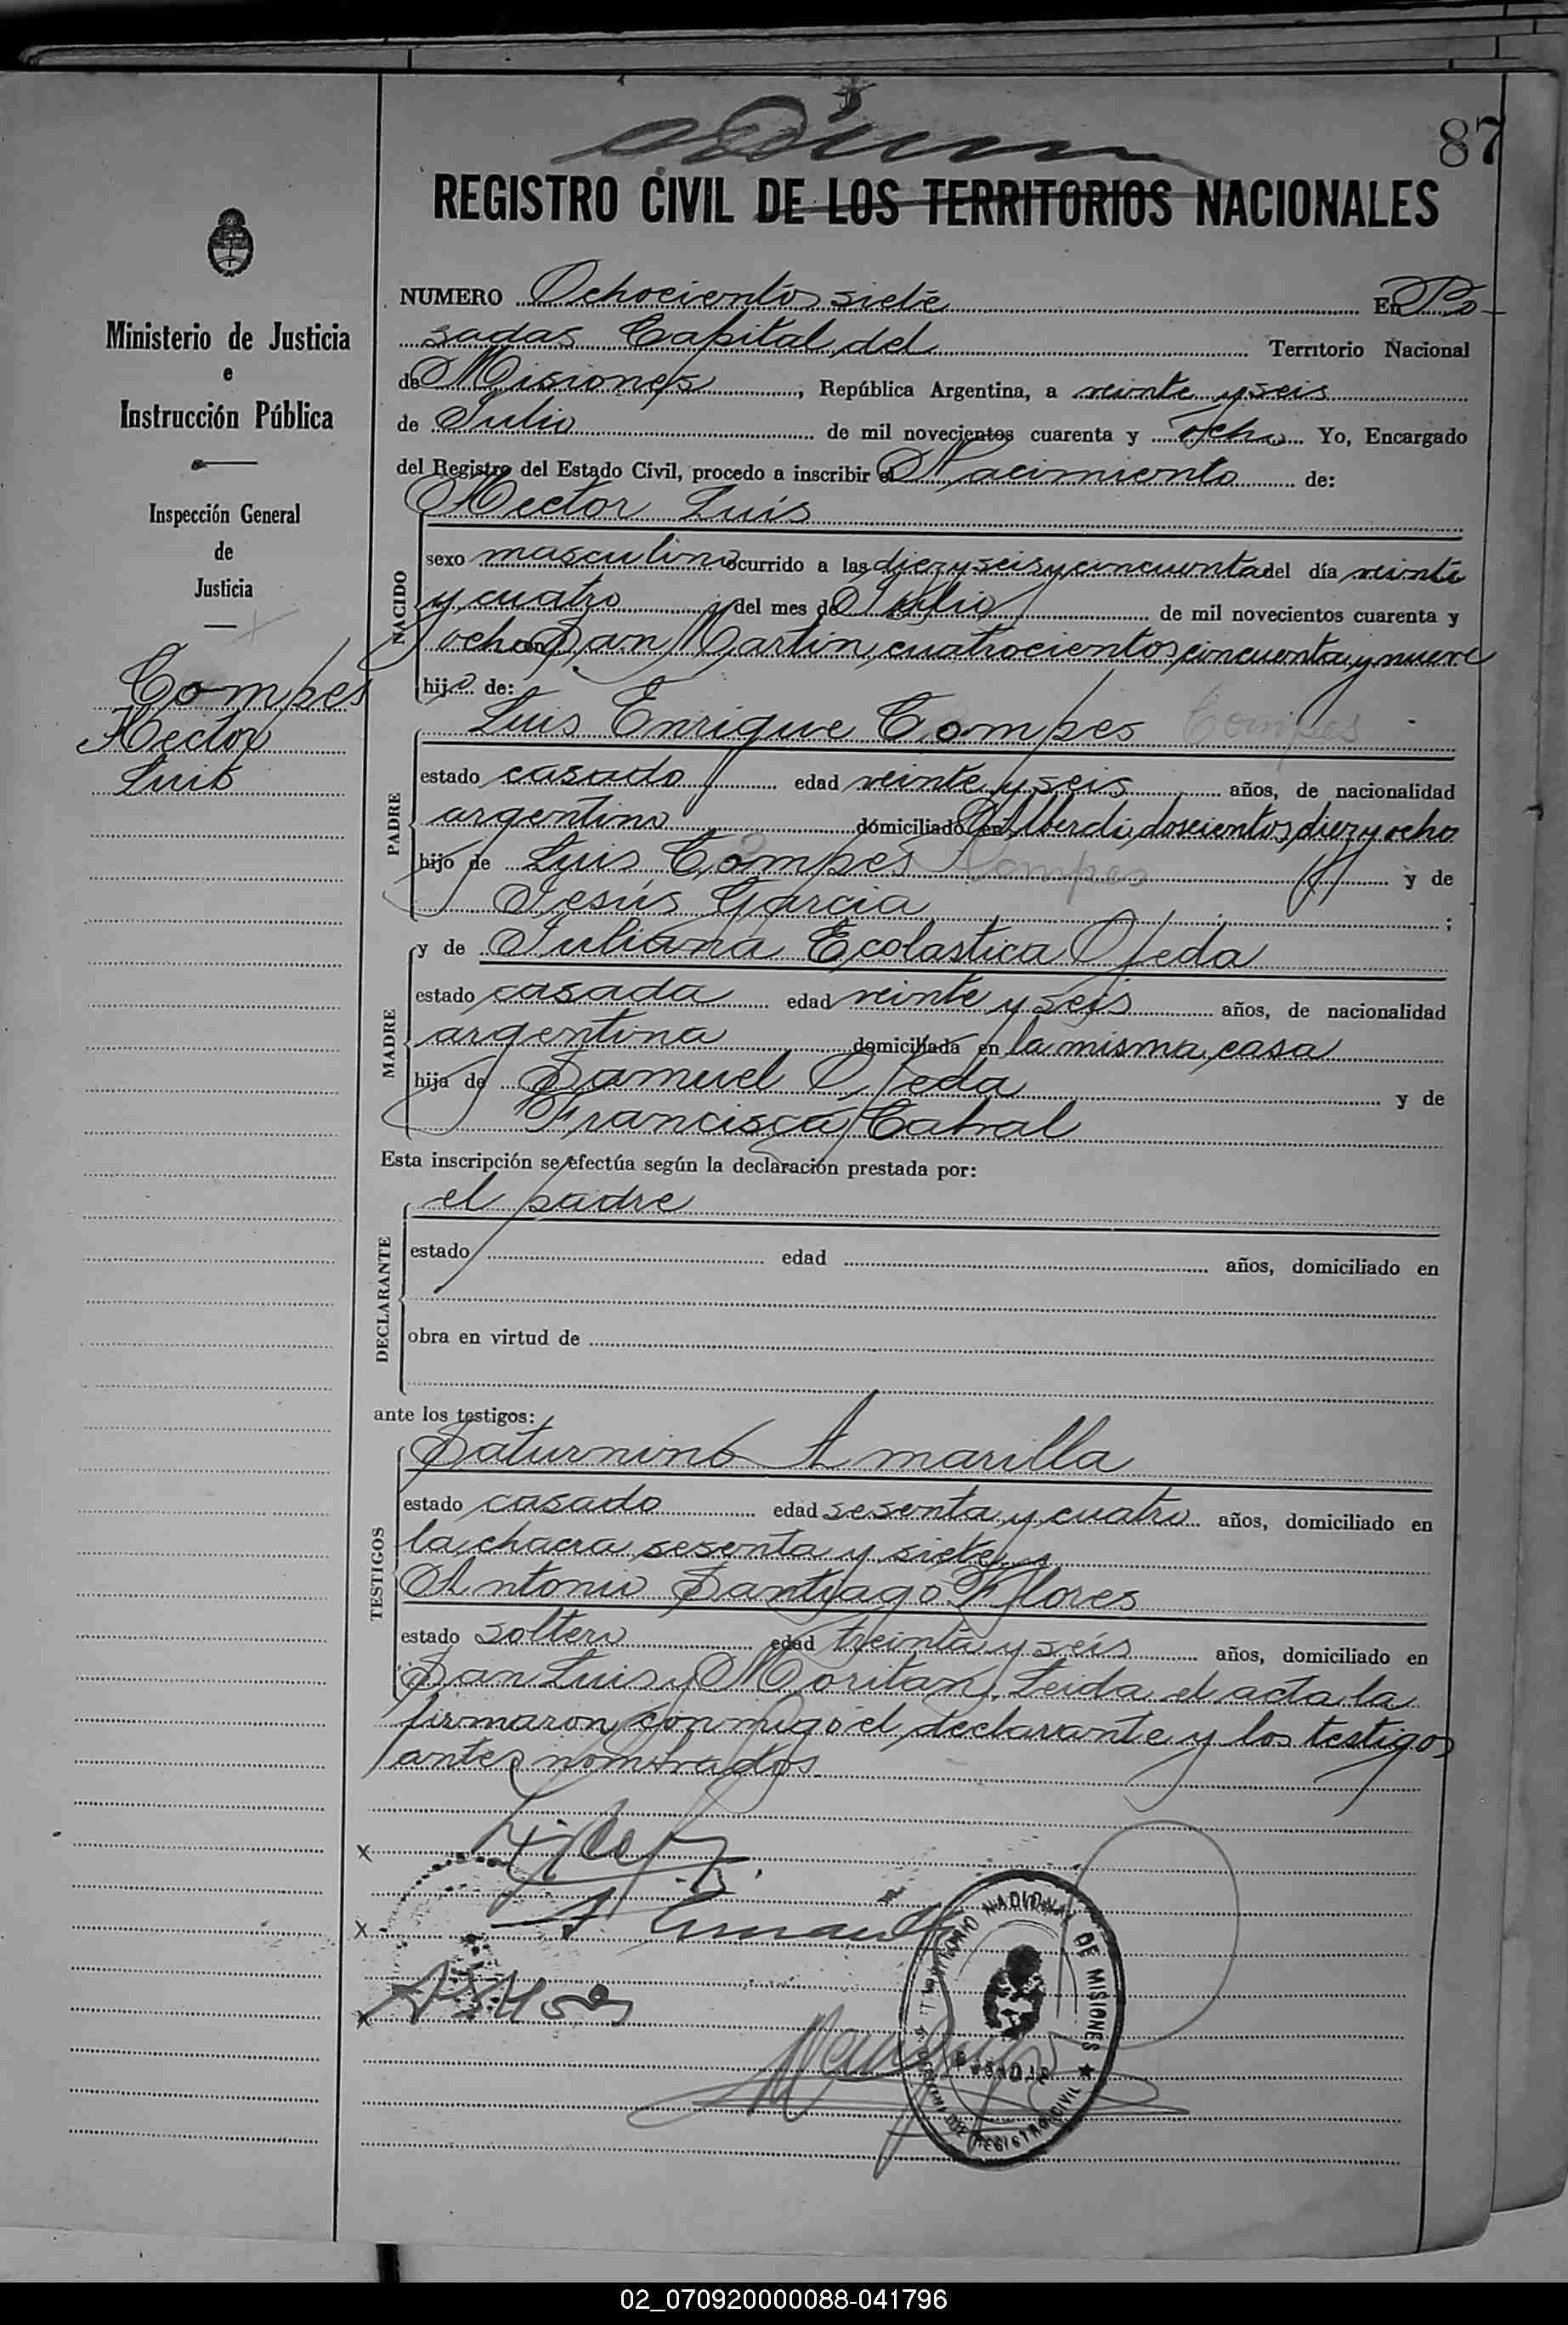 87
REGISTRO CIVIL DE LOS TERRITORIOS NACIONALES
Ministerio de Justicia
e
Instrucción Pública
Inspección General
de
Justicia
Compes
Hector
Luis
NUMERO Ochocientos siete En Po-
sadas Capital del Territorio Nacional
de Misiones, República Argentina, a veinte y seis
de Julio de mil novecientos cuarenta y ocho Yo, Encargado
del Registro del Estado Civil, procedo a inscribir el Nacimiento de:
Hector Luis
NACIDO
sexo masculino ocurrido a las diez y seis y cincuenta del día veinte
y cuatro del mes de Julio de mil novecientos cuarenta y
ocho en San Martin cuatrocientos cincuenta y nueve
hijo de:
Luis Enrique Compes Compes
PADRE
estado casado edad veinte y seis años, de nacionalidad
argentino domiciliado en Alberdi doscientos diez y ocho
hijo de Luis Compes Compes y de
Jesús Garcia ;
MADRE
y de Juliana Ecolastica Ojeda
estado casada edad veinte y seis años, de nacionalidad
argentina domiciliada en la misma casa
hija de Samuel Ojeda y de
Francisca Cabral
Esta inscripción se efectúa según la declaración prestada por:
el padre
DECLARANTE
estado edad años, domiciliado en
obra en virtud de
ante los testigos:
Saturnino Amarilla
TESTIGOS
estado casado edad sesenta y cuatro años, domiciliado en
la chacra sesenta y siete y
Antonio Santiago Flores
estado soltero edad treinta y seis años, domiciliado en
San Luis y Moritan. Leida el acta la
firmaron conmigo el declarante y los testigos
antes nombrados.
x
x
x
TERRITORIO NACIONAL DE MISIONES
POSADAS
REGISTRO CIVIL
02_070920000088-041796